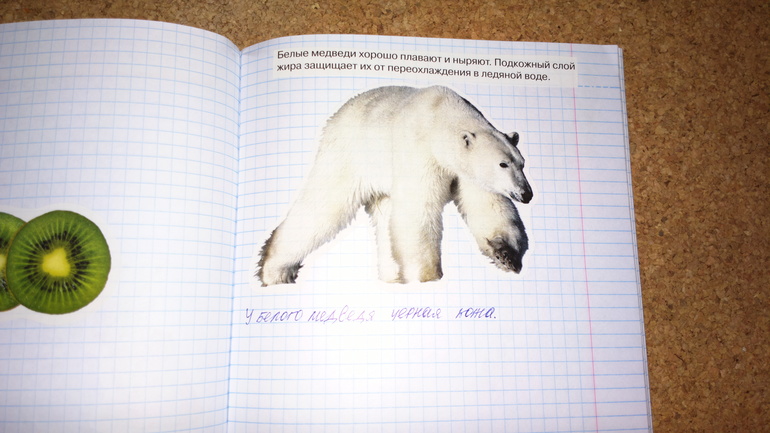 Белые медведи хорошо плавают и ныряют. Подкожный слой
жира защищает их от переохлаждения в ледяной воде.
У белого медведя черная кожа.